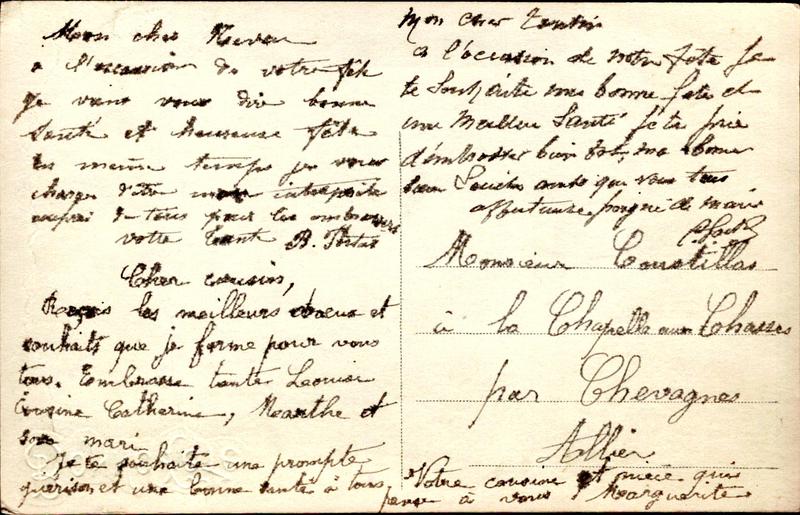 Mon cher Neveu
a l'occasion de votre fête
Je viens vous dire bonne
Santé et heureuse fête
En meme temps je vous
charge d'être mon interprète
auprès de tous pour les embrasser
votre Tante B.
Cher cousin,
Reçois les meilleurs vœux et
souhaits que je forme pour vous
tous. Embrasse tante Léonie
Cousine Catherine, Marthe et
son mari
Je te souhaite une prompte
guérison et une bonne santé à tous,
Mon cher
a l'occasion de votre fête je
te souhaite une bonne fete et
une Meilleur Santé je te prie
d'embrasser bien ma bonne
Louise que vous tous
affectueuse poigné de main
Monsieur Coustillas
à la Chapelle aux Chasses
par Chevagnes
Allier
Votre cousine et niece qui
pense à vous Marguerite